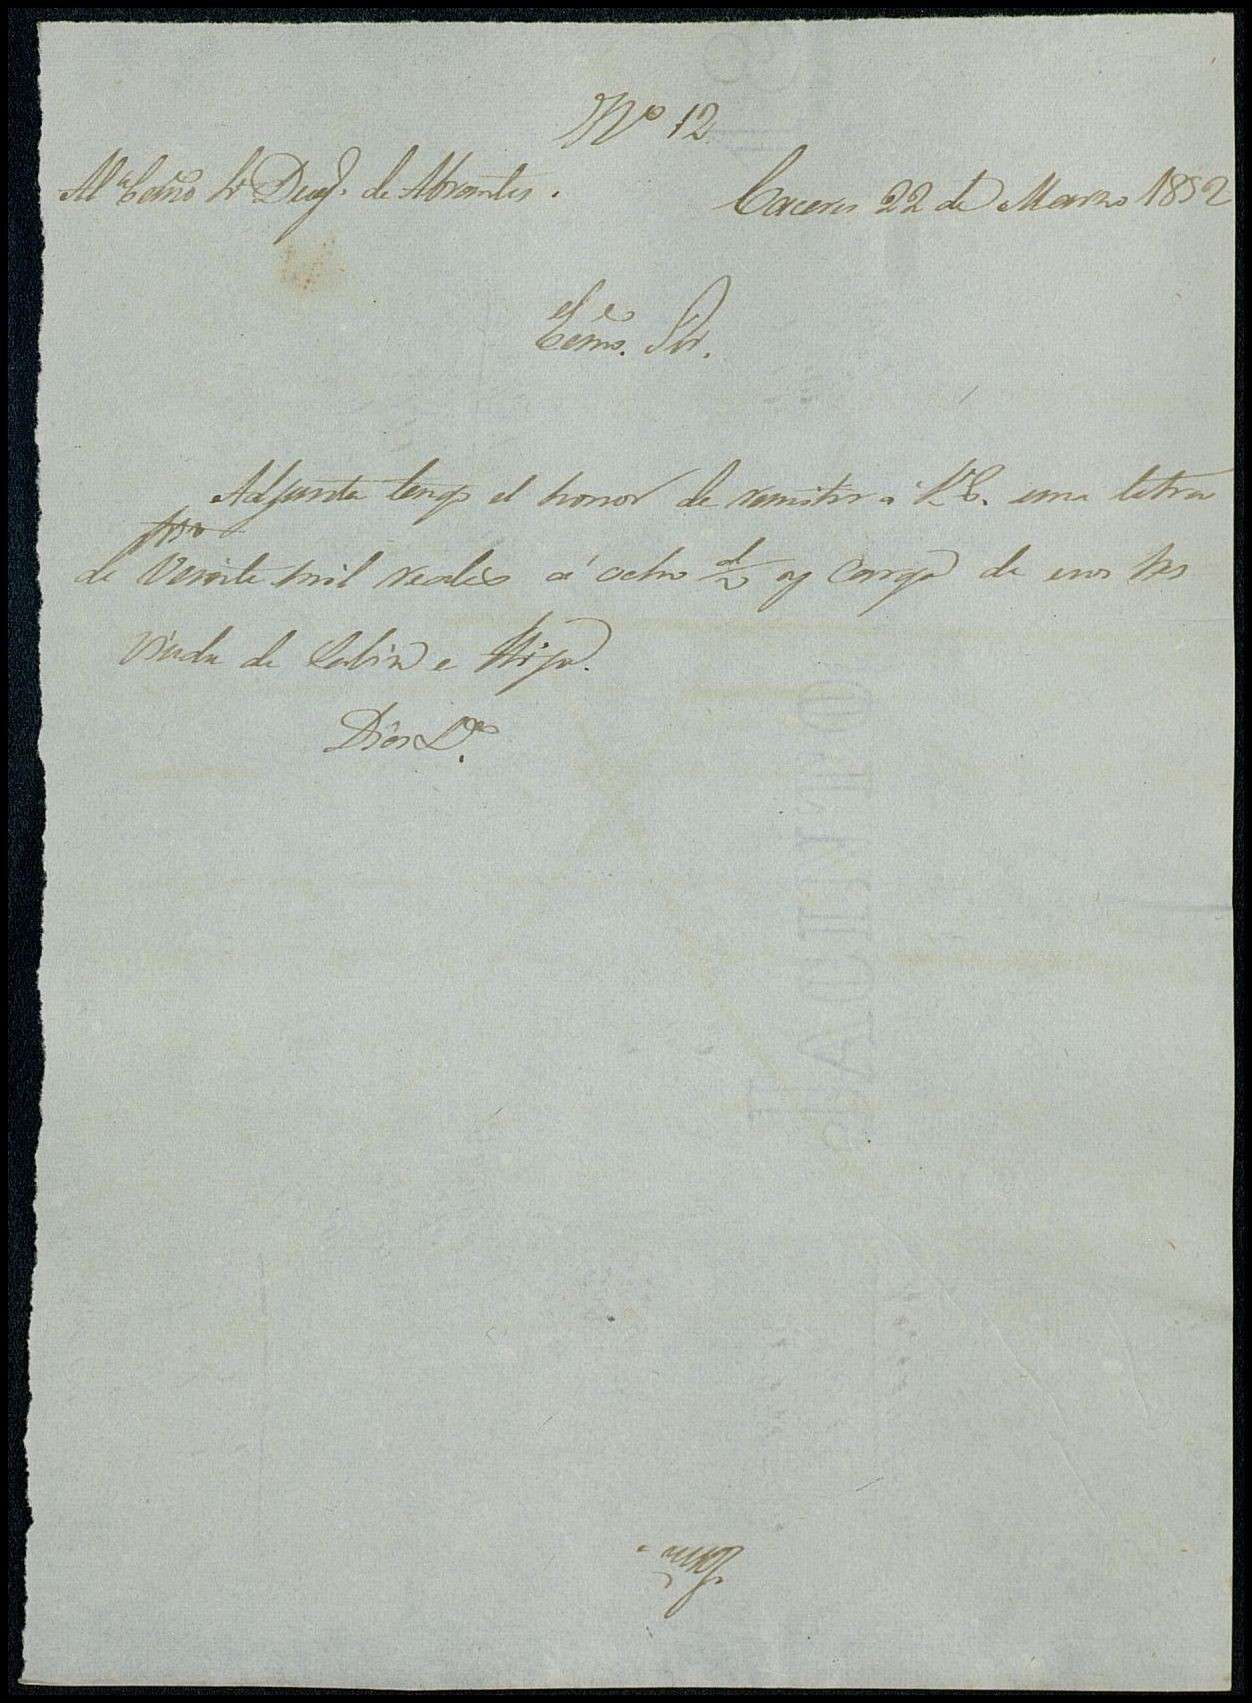 Nº 12
Al Exmo Sr Duq.e de Abrantes.
Caceres 22 de Marzo 1852
Exmo. Sor.
Adjunta tengo el honor de remitir á V.E. una letra
de Veinte mil reales á ocho d/v y cargo de esos Srs
Viuda de e Hijo.
Dios